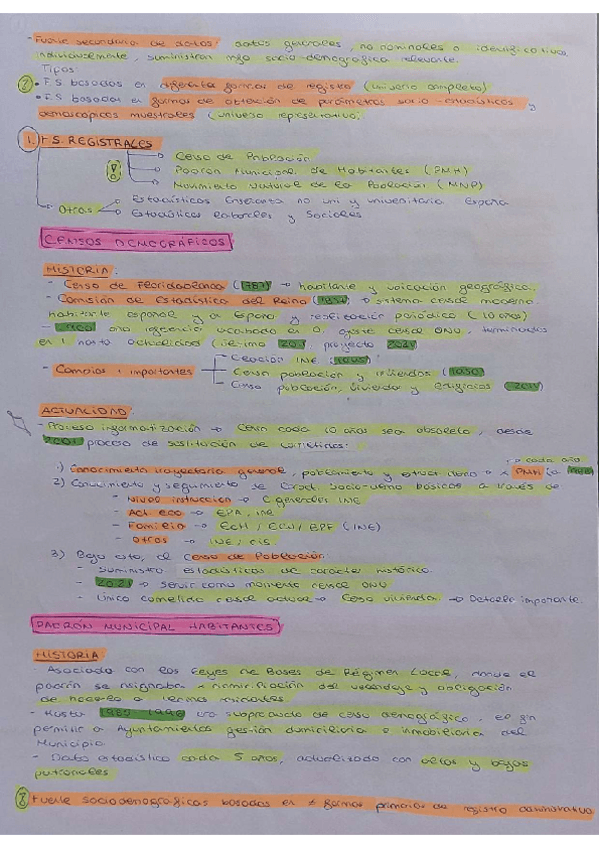 - Fuente secundaria de datos: datos generales, no nominales o identificativos
individualmente, suministran info socio-demográfica relevante.
Tipos:
• F.S basados en diferentes formas de registro (universo completo)
• F.S basados en formas de obtención de parámetros socio-estadísticos y
demoscópicos muestrales (universo representativo).
1. F.S. REGISTRALES
→ Censo de Población
→ Padrón Municipal de Habitantes (PMH)
→ Movimiento Natural de la Población (MNP)
→ Otros
Estadísticas Enseñanza no uni y universitaria España
Estadísticas laborales y Sociales
CENSOS DEMOGRÁFICOS
HISTORIA:
- Censo de Floridablanca (1787) → habitante y ubicación geográfica.
- Comisión de Estadística del Reino (1857) → sistema censal moderno.
habitante español y en España y realización periódica (10 años)
- 1900 año referencia acabado en 0, ajuste censal ONU, terminados
en 1 hasta actualidad (último 2011, proyecto 2021)
- Cambios + importantes
Creación INE (1945)
Censo población y viviendas (1950)
Censo población, vivienda y edificios (2011)
ACTUALIDAD:
- Proceso informatización → Censo cada 10 años sea obsoleto, desde
2001 proceso de sustitución de cometidos:
→ cada año
1) Conocimiento trayectoria general, poblamiento y estructura → x PMH (a 1998)
2) Conocimiento y seguimiento de Caract. socio-demo básicos a través de
- Nivel instrucción → C generales INE
- Act. eco → EPA, INE
- Familia → ECH / ECV / EPF (INE)
- Otros → INE / CIS
3) Bajo esto, el Censo de Población
- Suministro estadísticas de carácter histórico.
- 2021 → Servir como momento censal ONU
- Único cometido censal actual → Censo viviendas → Detalle importante.
PADRÓN MUNICIPAL HABITANTES
HISTORIA
- Asociado con las Leyes de Bases de Régimen Local,
padrón se asignaba x del y obligación
de hacerlo a
- Hasta 1985-1996 era subproducto de censo demográfico, el fin
permitir a Ayuntamientos gestión domiciliaria e inmobiliaria del
Municipio
- Dato estadístico cada 5 años, actualizado con altas y bajas
patronales
Fuente sociodemográficas basadas en ≠ formas primarias de registro administrativo